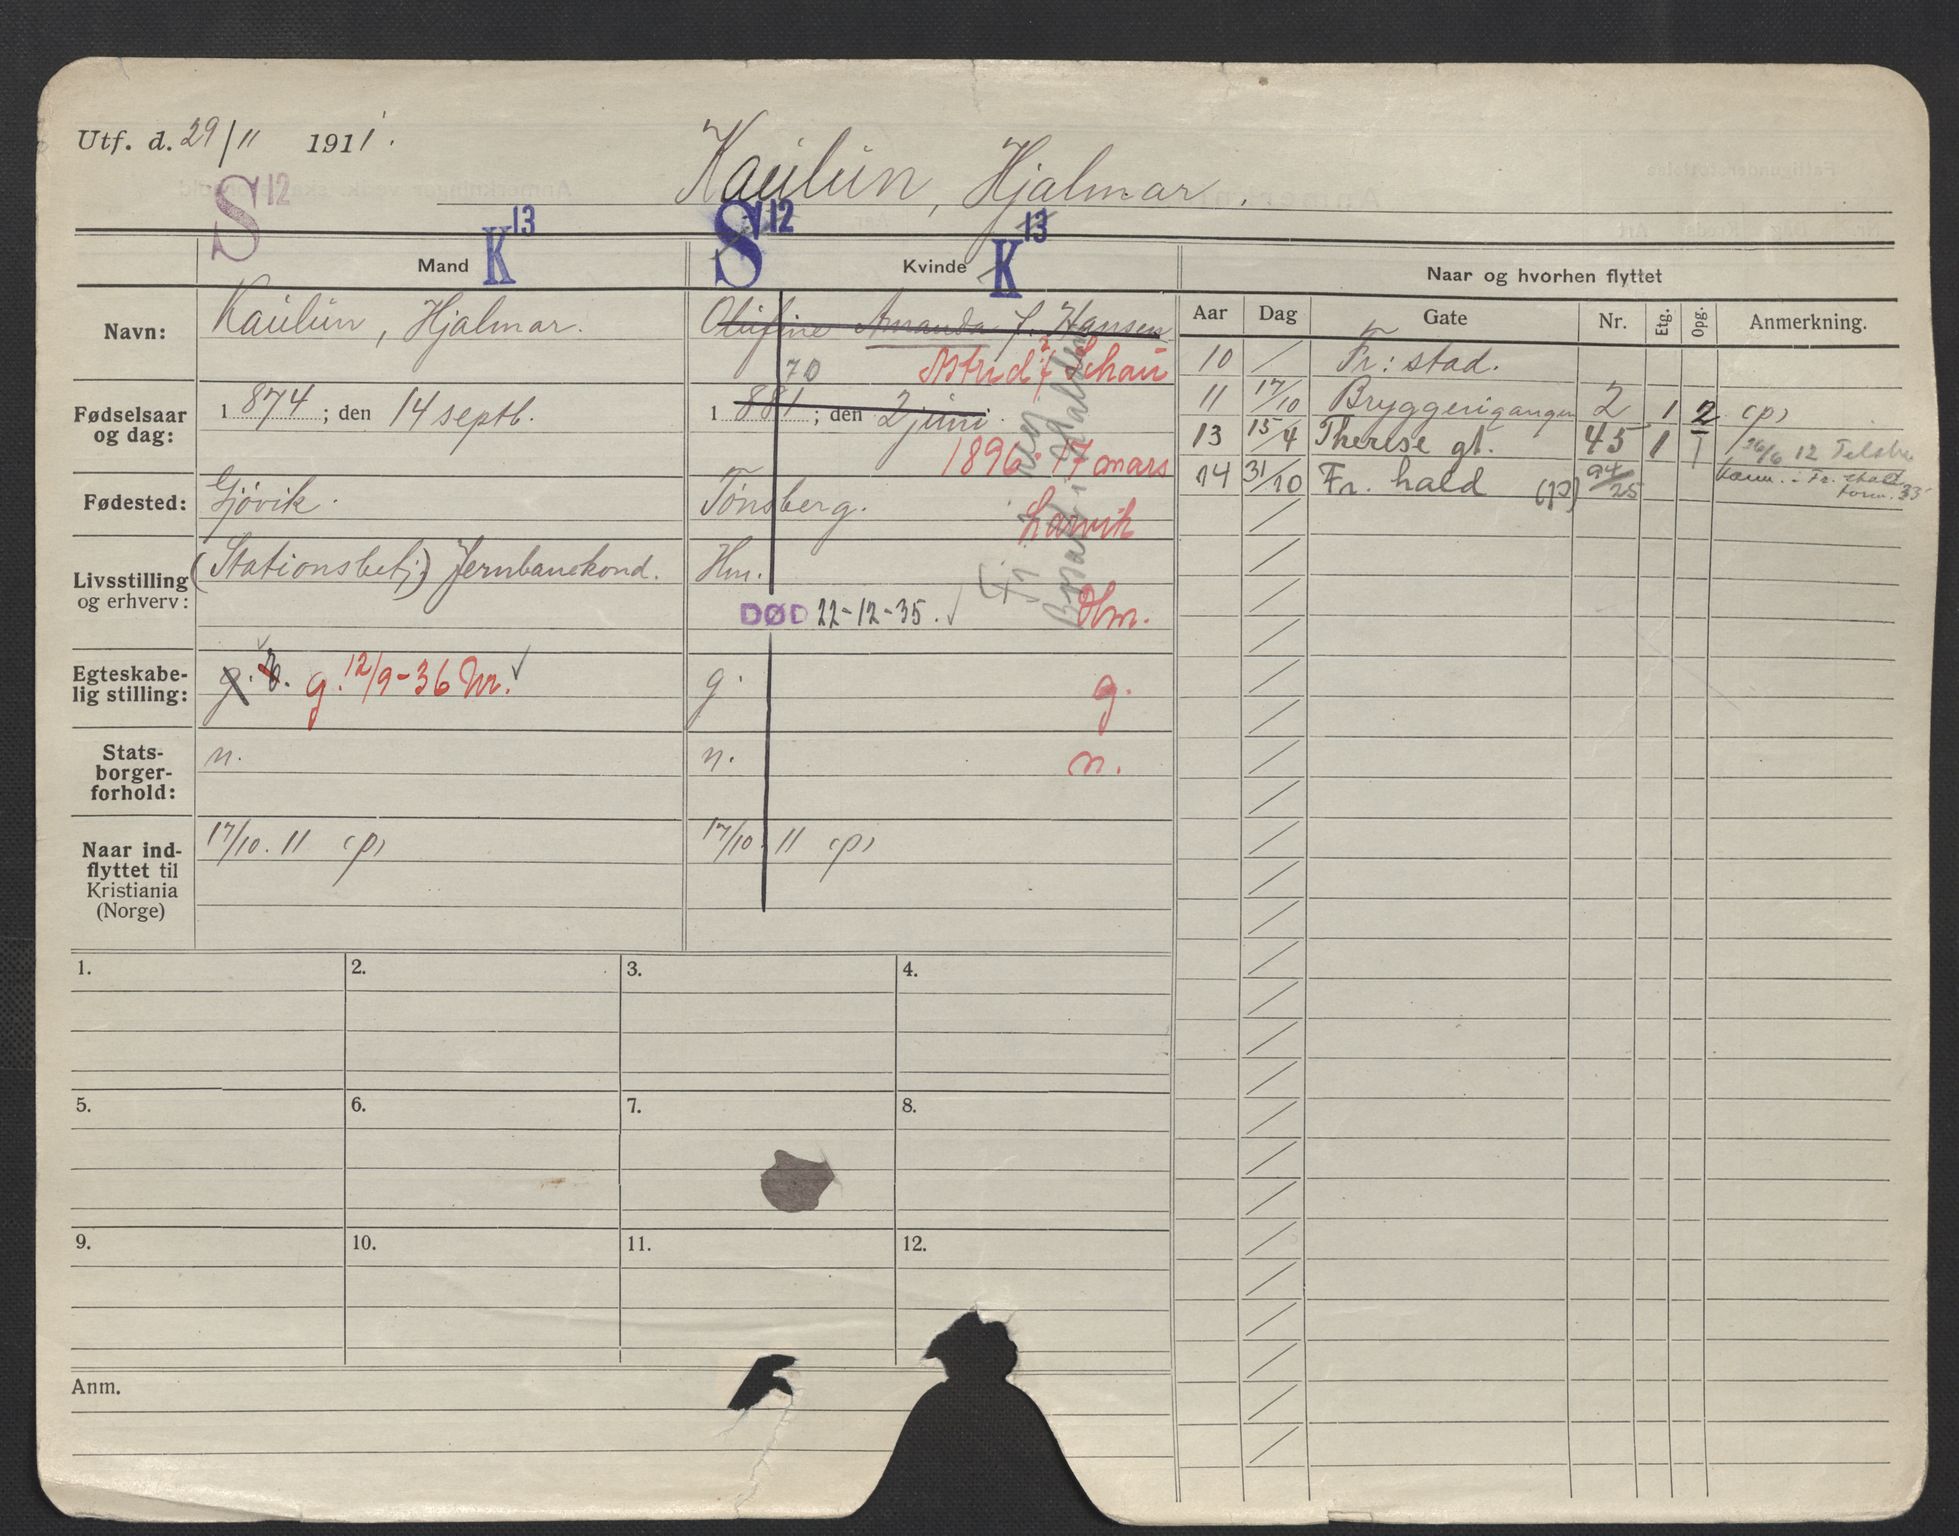 Utf. d. 29/11 1911.
Kaulun, Hjalmar.
S12
K13
S12
K13
Mand
Kvinde
Naar og hvorhen flyttet
Navn:
Kaulun, Hjalmar.
Olufine Amanda f. Hansen
70
Astrid f. Schau
Fødselsaar og dag:
1 874 ; den 14 septb.
1 881 ; den 2 juni.
1896 17 mars
Fødested:
Gjövik.
Tönsberg.
Larvik
Livsstilling og erhverv:
(Stationsbetj.) Jernbanekond.
Hm.
DØD 22-12-35.
Hm.
Egteskabelig stilling:
g. g. 12/9-36 Nr.
g.
g.
Statsborgerforhold:
n.
n.
n.
Naar indflyttet til Kristiania (Norge)
17/10. 11 (p)
17/10. 11 (p)
Aar Dag Gate Nr. Etg. Opg. Anmerkning.
10 / Fr: stad.
11 17/10 Bryggerigangen 2 1 2 (p)
13 15/4 Therese gt. 45 1 1 26/6 12
14 31/10 Fr. hald (p) 94/25
1.
2.
3.
4.
5.
6.
7.
8.
9.
10.
11.
12.
Anm.